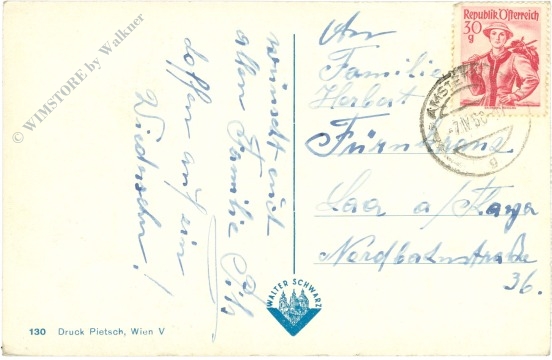 © WIMSTORE by Walkner
wünscht euch
allen Familie
hoffen auf ein
Wiedersehn!
An
Familie
Herbert
Fürnkranz
Laa a/Thaya
Nordbahnstraße
36.
Republik Österreich
30
g
AMSTE
WALTER SCHWARZ
130 Druck Pietsch, Wien V